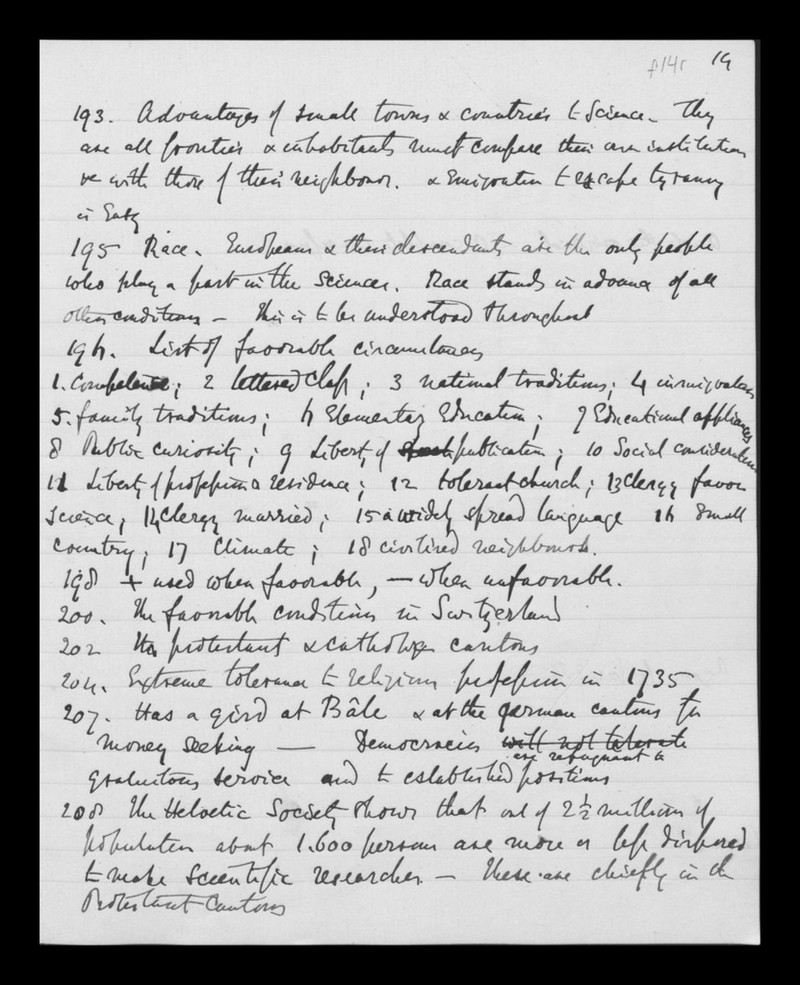 f14r 19
193. Advantages of small towns & countries to Science. They
are all frontier & inhabitants must compare their own institutions
with those of their neighbours. & Emigration to escape tyranny
is Easy
195 Race. Europeans & their descendants are the only people
who play a part in the Sciences. Race stands in advance of all
other conditions — this is to be understood throughout
196. List of favorable circumstances
1. Competence; 2 lettered class; 3 national traditions; 4 immigration
5. family traditions; 6 Elementary Education; 7 Educational appliances
8 Public curiosity; 9 Liberty of publication; 10 Social consideration
11 Liberty of profession & residence; 12 tolerant church; 13 Clergy favor
Science; 14 Clergy married; 15 a widely spread language 16 Small
Country; 17 Climate; 18 civilised neighbours.
198 + used when favorable, — when unfavorable.
200. The favorable conditions in Switzerland
202 The protestant & catholic cantons
204. Extreme tolerance to religious profession in 1735
207. Has a gird at Bâle & at the german cantons for
money seeking — Democracies will not tolerate
are repugnant to
gratuitous service and to established positions
208 The Helvetic Society shows that out of 2½ millions of
population about 1.600 persons are more or less disposed
to make scientific researches — These are chiefly in the
Protestant Cantons